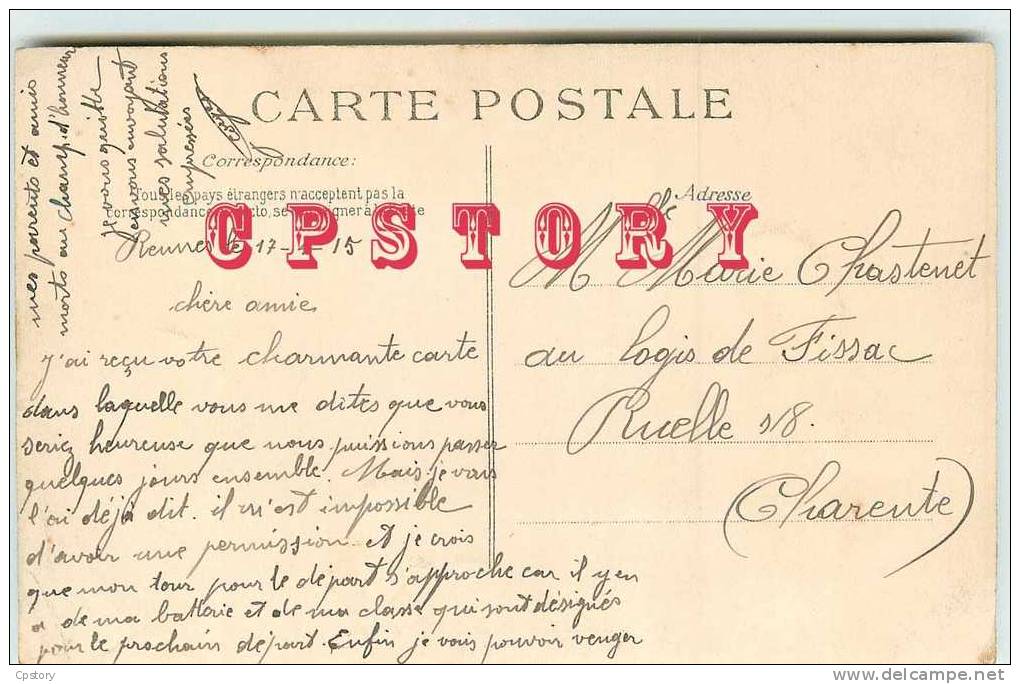 CARTE POSTALE
Correspondance:
Tous les pays étrangers n'acceptent pas la
correspondance au recto, se renseigner à la poste
Adresse
CPSTORY
Rennes le 17-
-15
chère amie
J'ai reçu votre charmante carte
dans laquelle vous me dites que vous
seriez heureuse que nous puissions passer
quelques jours ensemble. Mais je vous
l'ai déjà dit. il m'est impossible
d'avoir une permission. et je crois
que mon tour pour le départ s'approche car il y en
a de ma batterie et de ma classe qui sont désignés
pour le prochain départ. Enfin je vais pouvoir venger
mes parents et amis
morts au champ d'honneur
Je vous quitte
en vous envoyant
mes salutations
empressées
Mlle Marie Chastenet
au logis de Fissac
Ruelle s/
(Charente)
Cpstory
www.delcampe.net